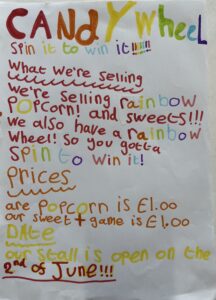 CANDYWheeL
Spin it to win it!!!!!!
What we're selling
we're selling rainbow
POPcorn! and sweets!!!
we also have a rainbow
wheel! So you gotta
Spin to win it!
Prices
are popcorn is £1.00
our sweet + game is £1.00
DAte
our stall is open on the
2nd of June!!!